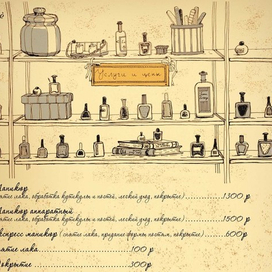 Услуги и цены
Маникюр
снятие лака, обработка кутикулы и ногтей, легкий уход, покрытие)..............1300 р
Маникюр аппаратный
снятие лака, обработка кутикулы и ногтей, легкий уход, покрытие)..............1500 р
Экспресс маникюр (снятие лака, придание формы ногтям, покрытие)..........600р
Снятие лака.......................100 р
Покрытие.......................300р